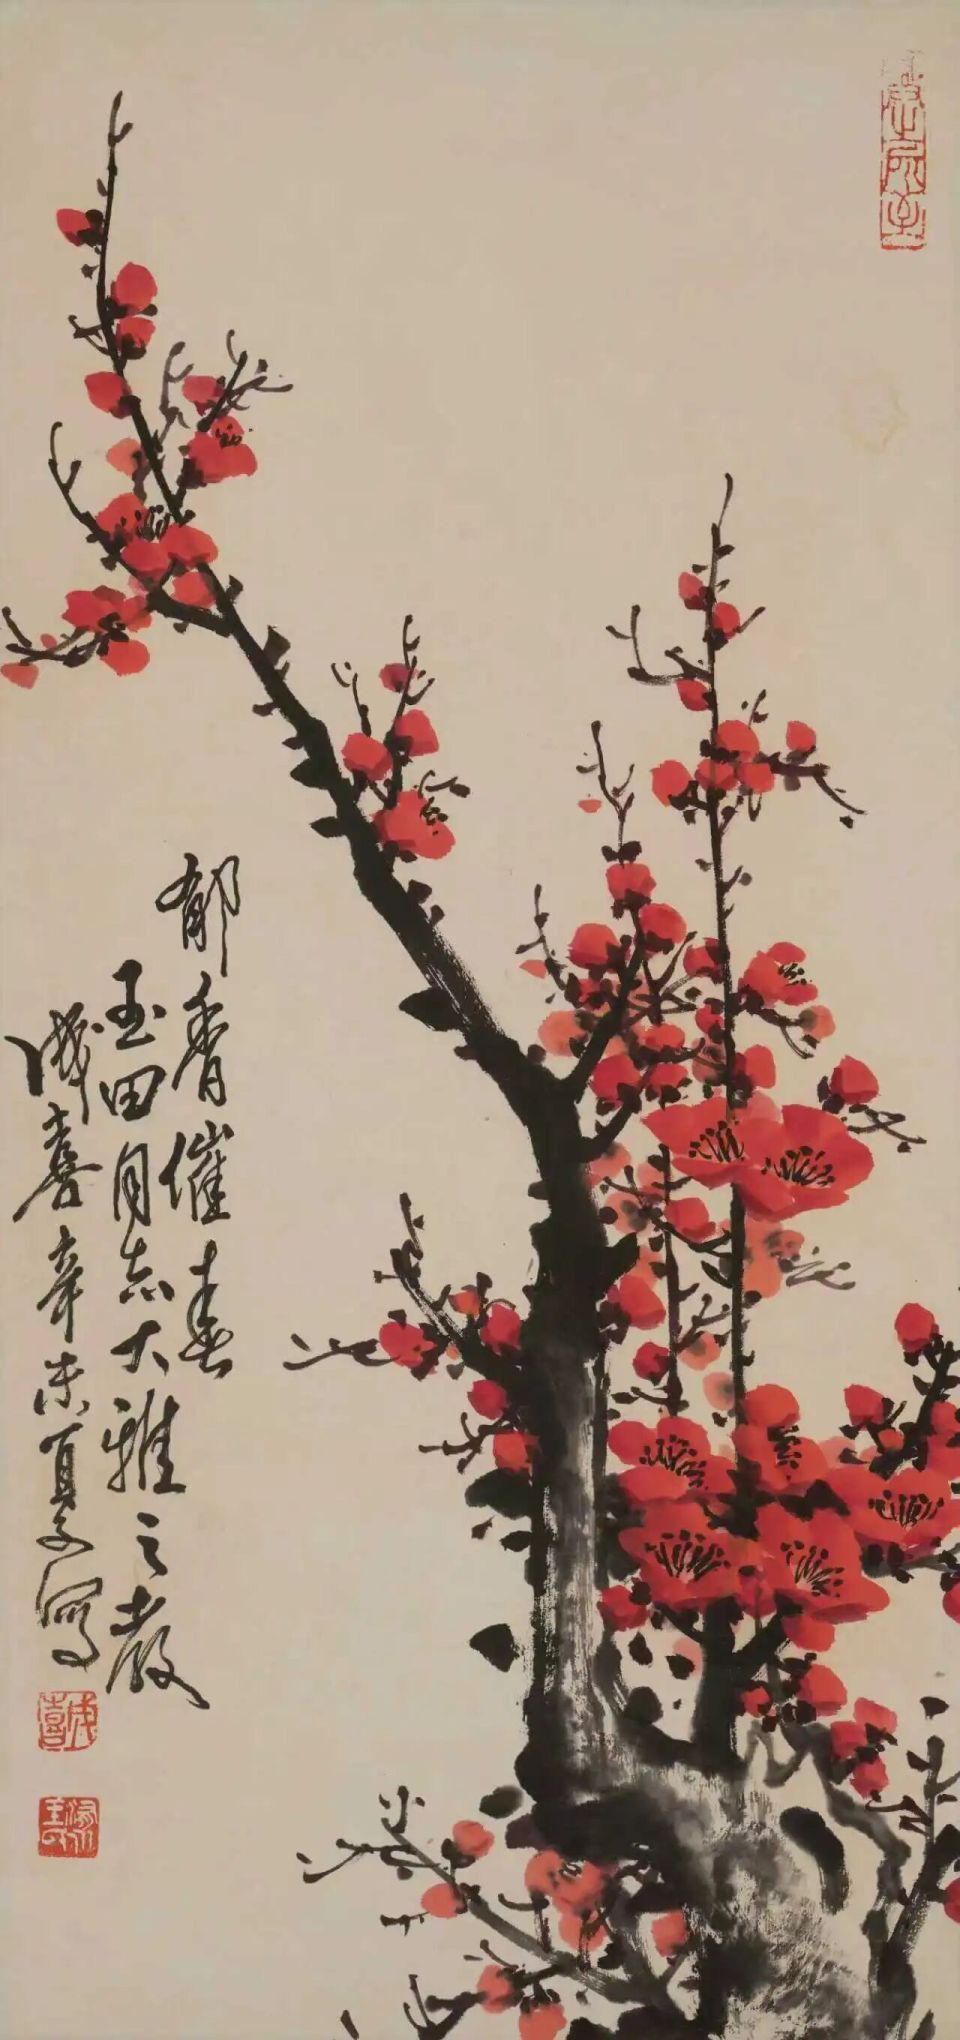 郁香催春
玉田同志大雅之教
成喜辛未夏写